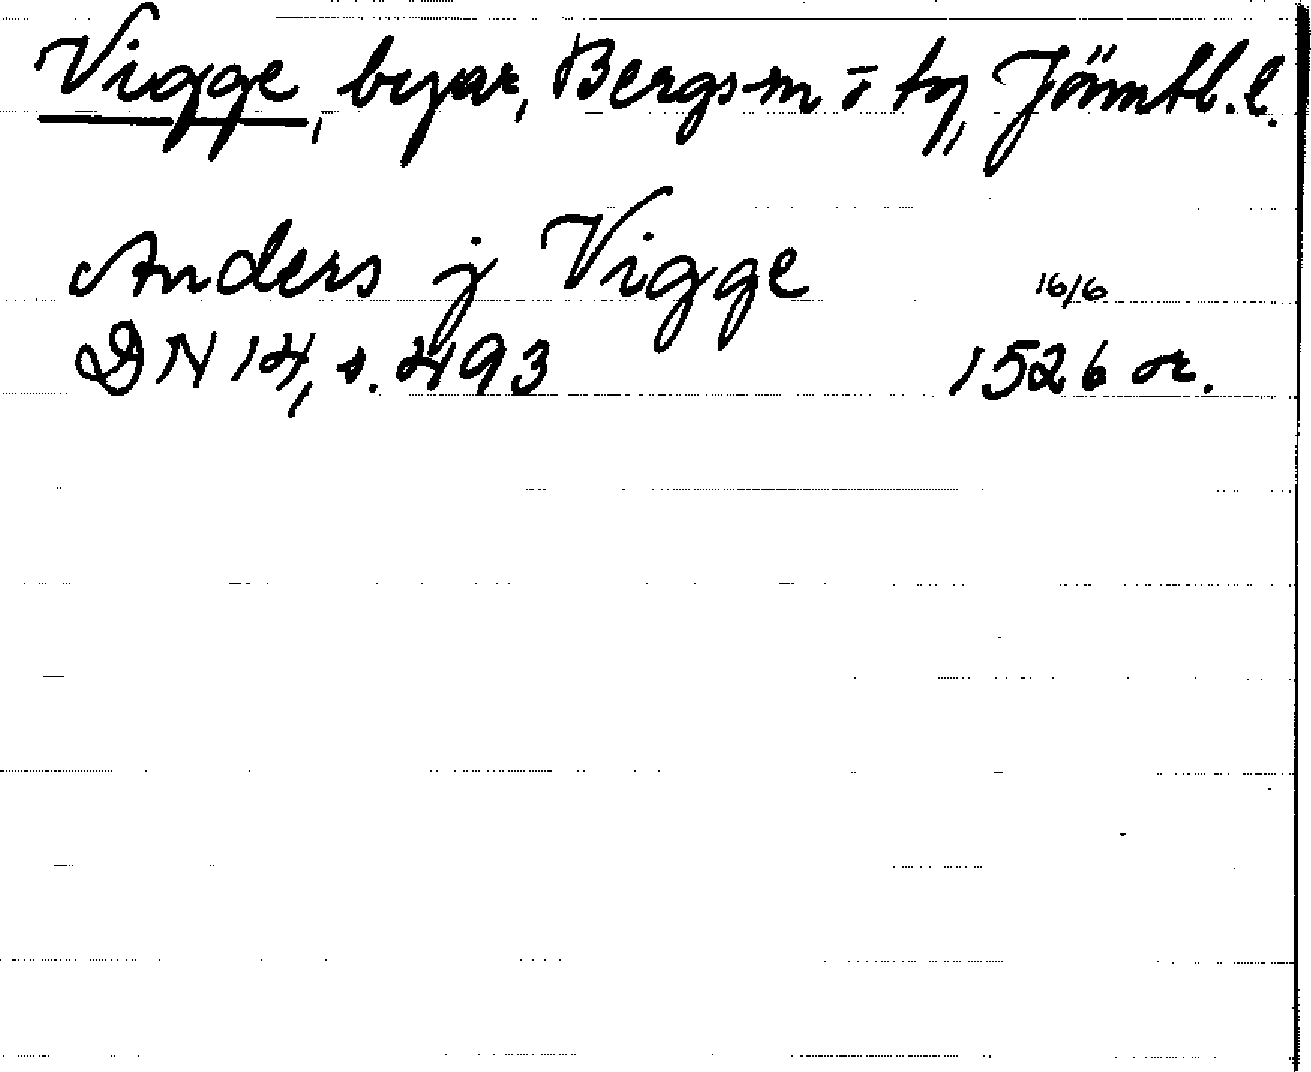 Vigge, byar, Bergs sn o tg, Jämtl. l.
Anders j Vigge 16/6
DN 14, s. 493 1526 or.